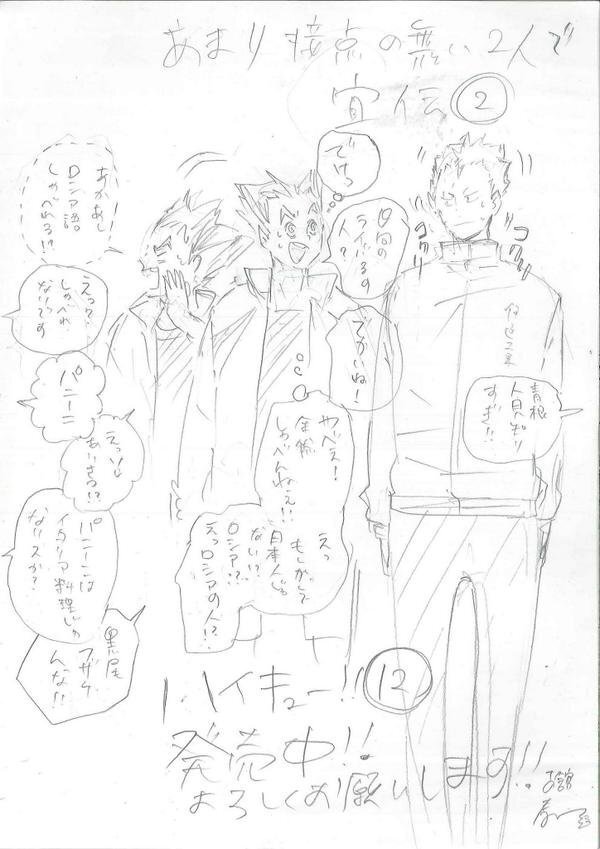 あまり接点の無い2人で
宣伝②
でけっ
日向の
ライバルの
人？
でかいね！
コク
コク
伊達工業
青根
人見知り
すぎ!!
やべえ！
全然
しゃべんねえ!!
えっ
もしかして
日本人じゃ
ない!?
ロシア!?
えっロシアの人!?
あかあし
ロシア語
しゃべれる!?
えっ?!
しゃべれ
ないです
パニーニ
えっ
あいさつ!?
パニーニは
イタリア料理じゃ
ないスか？
黒尾
フザケ
んな!!
ハイキュー!!⑫
発売中!!
よろしくお願いします!!
古舘
春一